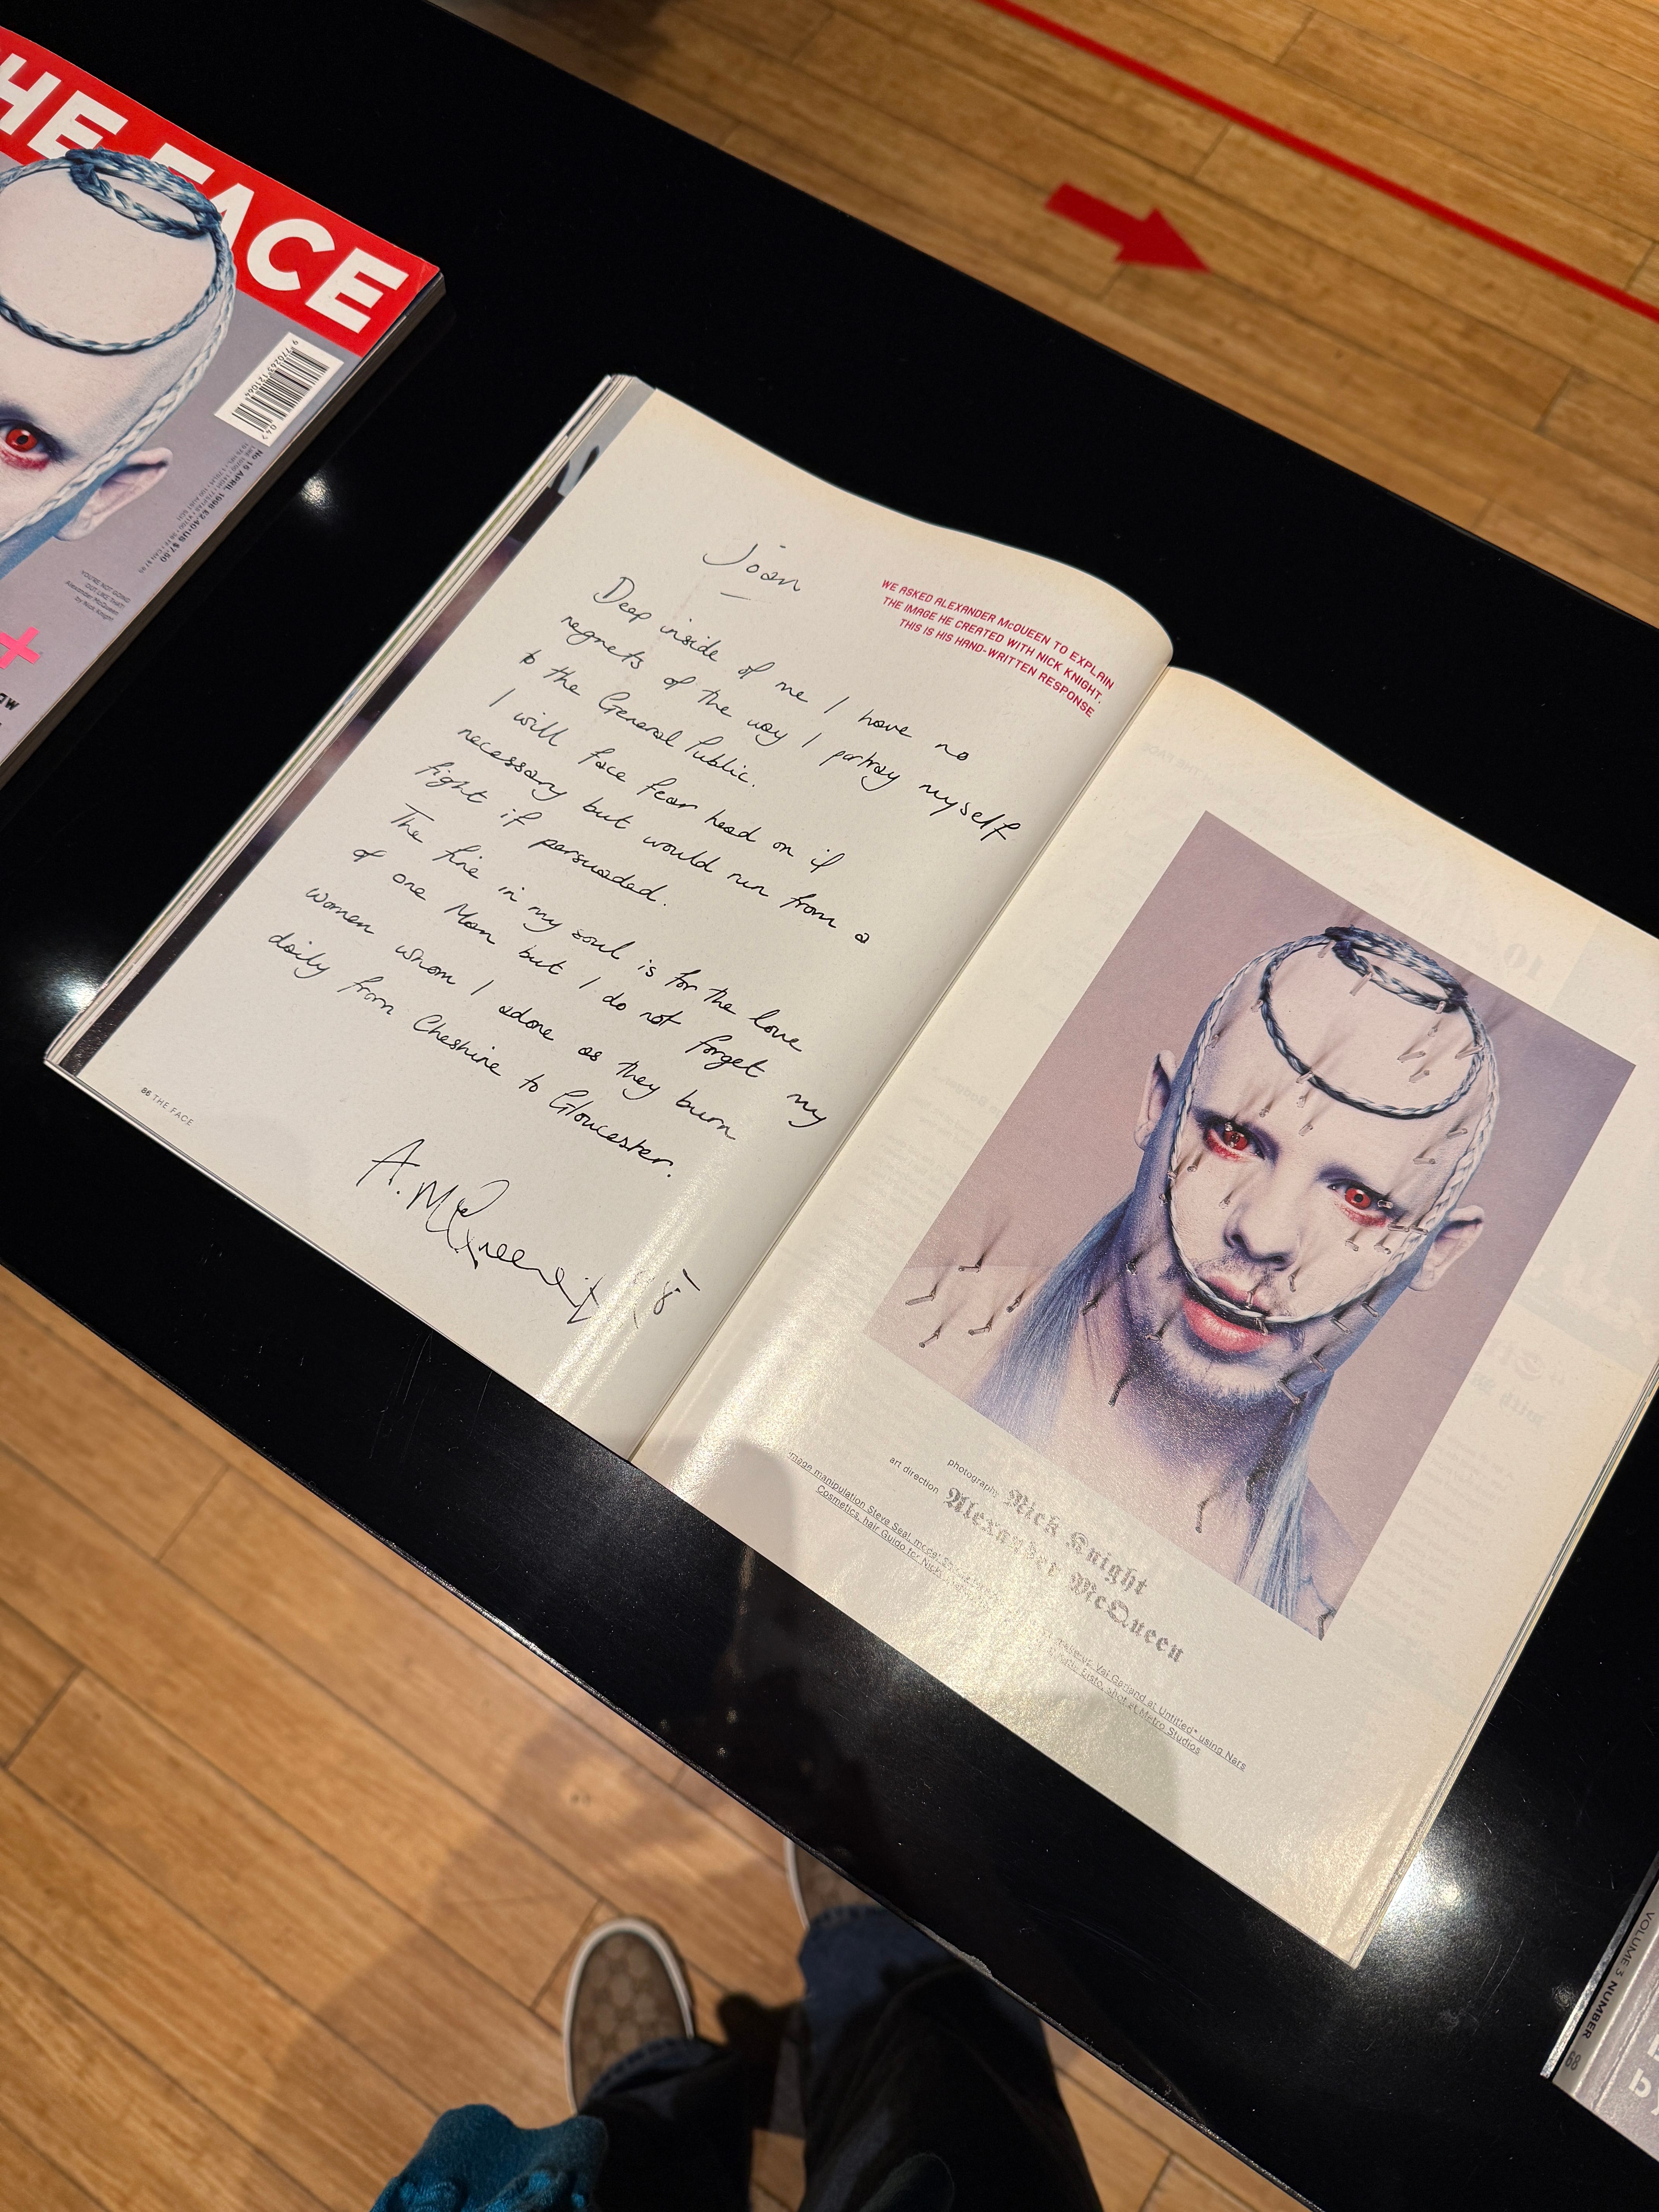 HE FACE
9 770263 121064
04>
No 15 APRIL 1998 £2.40 US $7.50
YOU'RE NOT GOING
OUT LIKE THAT!
Alexander McQueen
by Nick Knight
+
Joan
Deep inside of me I have no
regrets of the way I portray myself
to the General Public.
I will face fear head on if
necessary but would run from a
fight if persuaded.
The fire in my soul is for the love
of one Man but I do not forget my
women whom I adore as they burn
daily from Cheshire to Gloucester.
A. McQueen
WE ASKED ALEXANDER McQUEEN TO EXPLAIN
THE IMAGE HE CREATED WITH NICK KNIGHT.
THIS IS HIS HAND-WRITTEN RESPONSE
86 THE FACE
photography Nick Knight
art direction Alexander McQueen
image manipulation Steve Seal
Val Garland at Untitled* using Nars
Cosmetics, hair Guido for Nicky
shot at Metro Studios
VOLUME 3 NUMBER